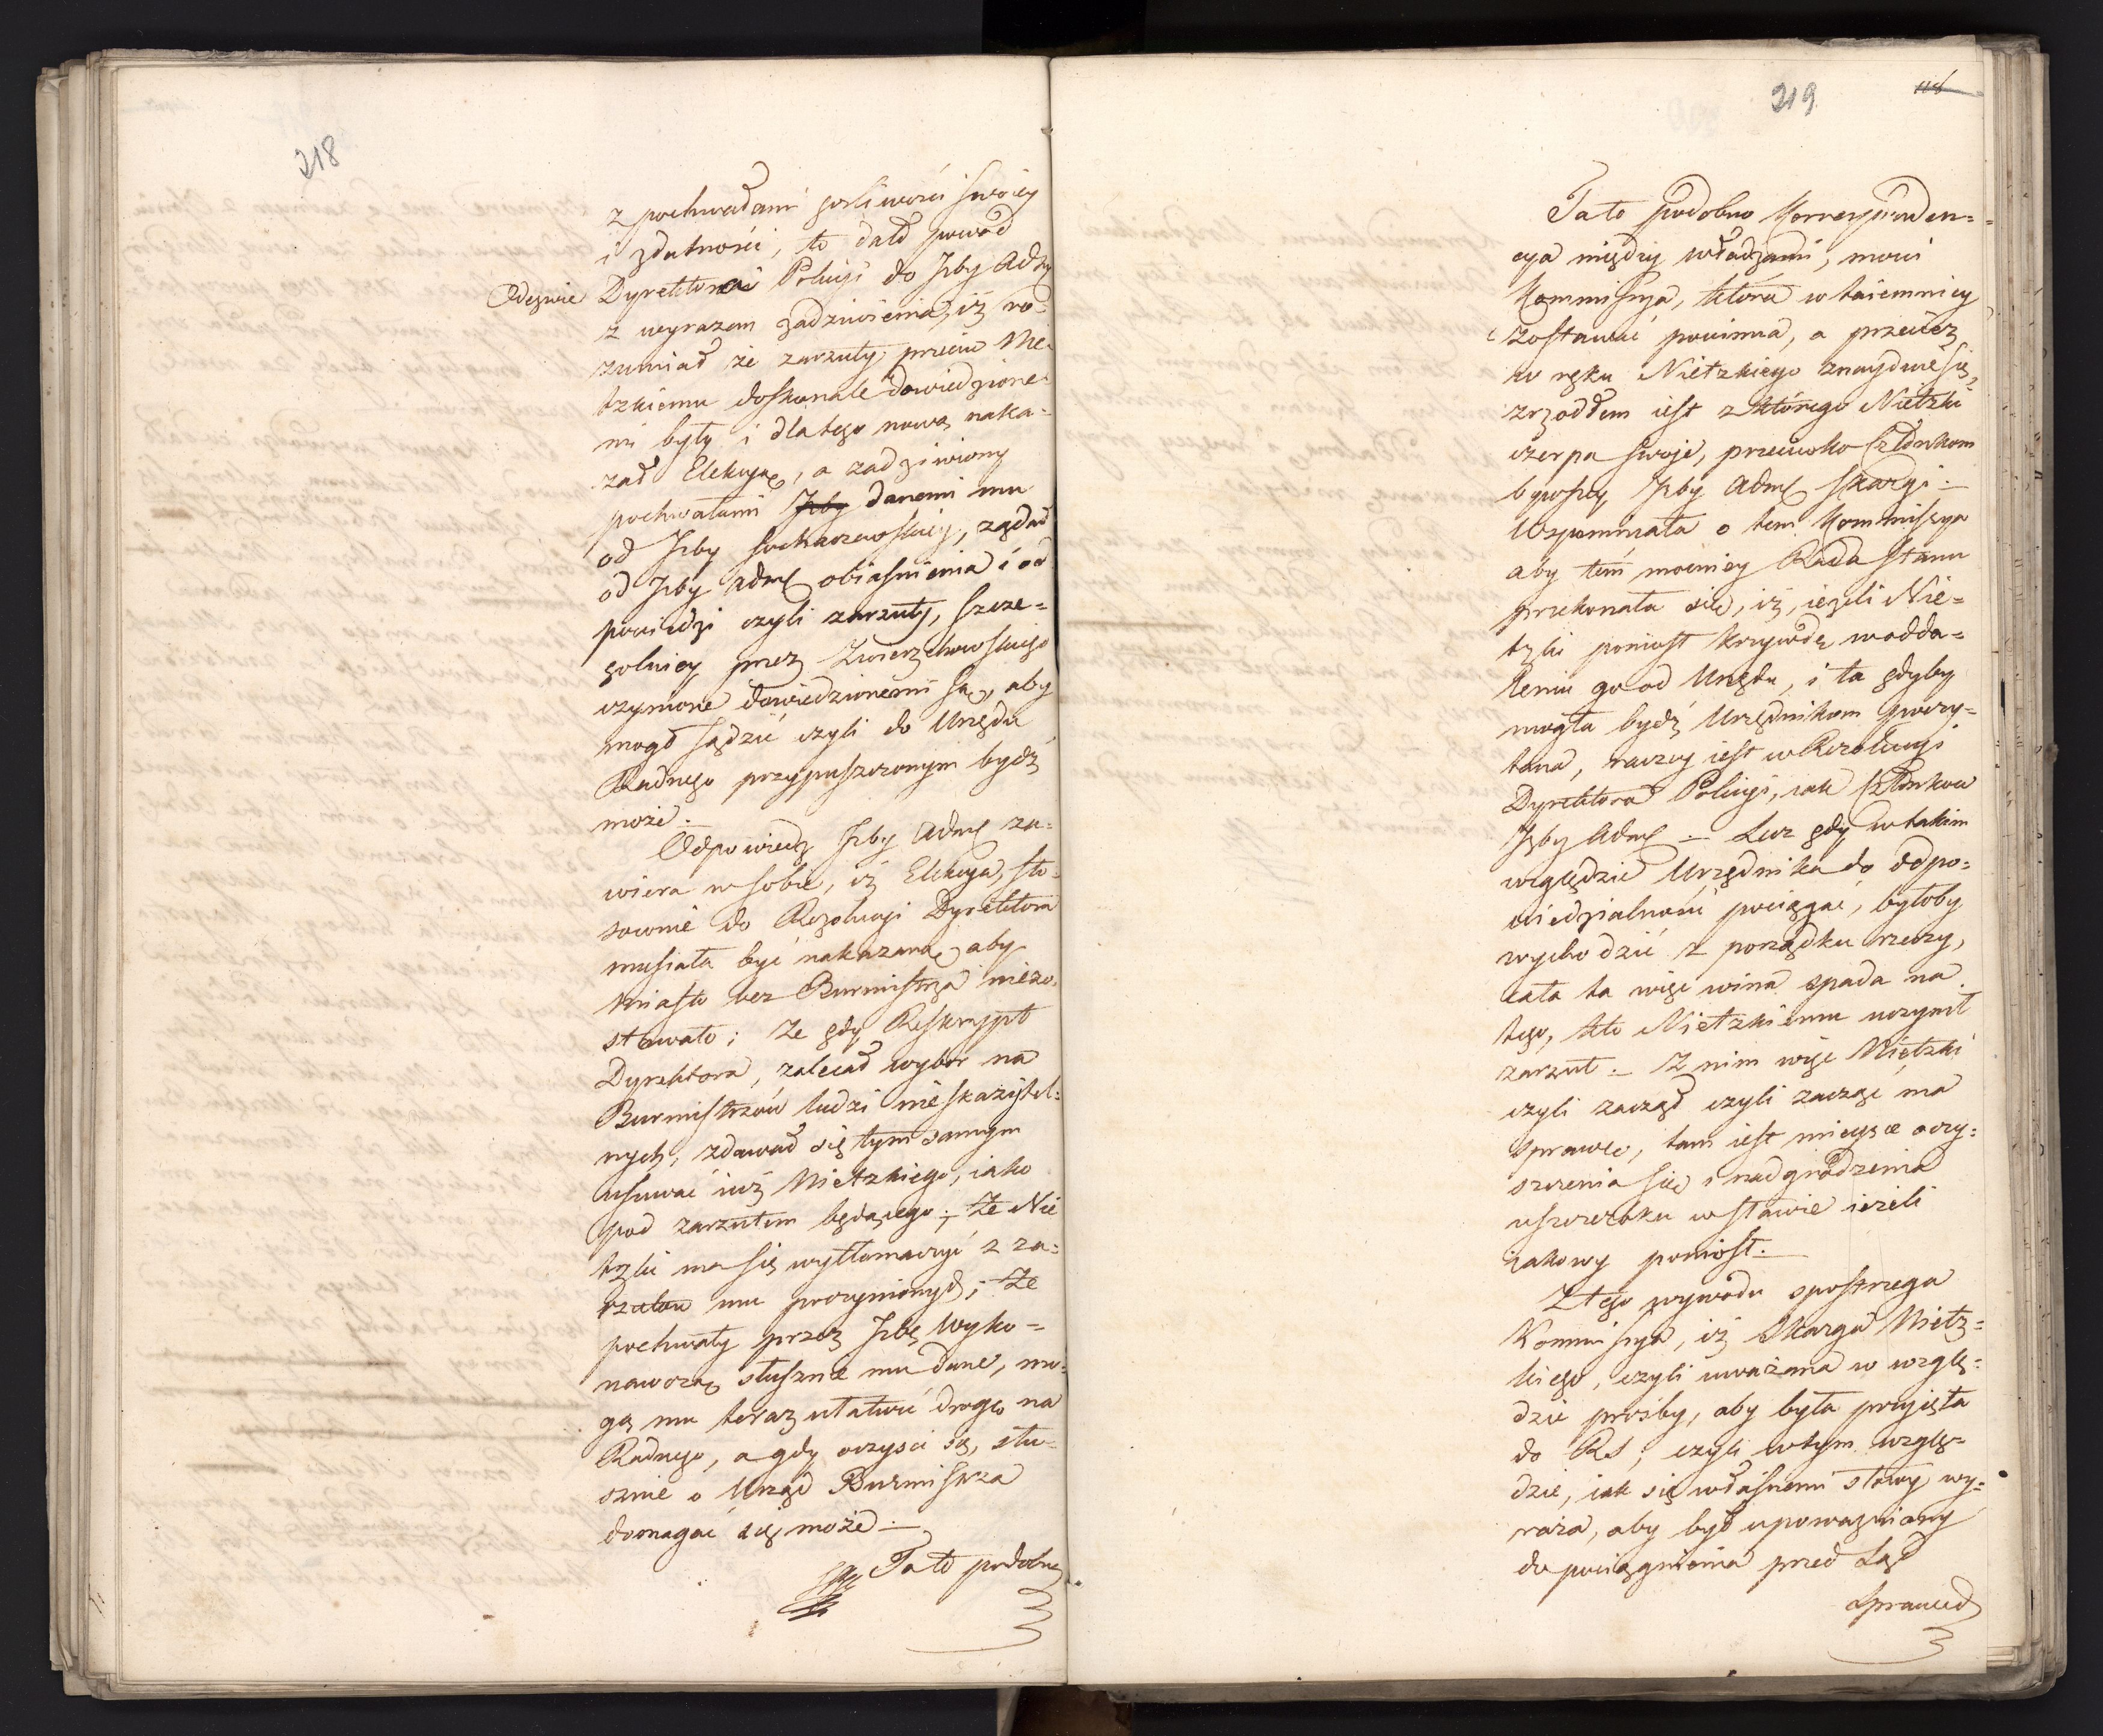 218
z pochwałami gorliwości swoiey
i zdatności, to dało powód
Odezwie Dyrektora Policyi do Izby Adm
z wyrazem zadziwienia, iż ro-
zumiał że zarzuty przeciw Nie-
tzkiemu doskonale dowiedzione-
mi były i dlatego nową naka-
zał Elekcyą, a zadziwiony
pochwałami Izby danemi mu
od Izby Sochaczewskiey, żądał
od Izby Adm obiasnienia i od
powiedzi czyli zarzuty, szcze=
golniey przez Zwierzchowskiego
czynione dowiedzionemi są, aby
mogł sądzić czyli do Urzędu
Radnego przypuszczonym bydź
może.
Odpowiedź Izby Adm za-
wiera w sobie, iż Elekcya, sto-
sownie do Rezolucyi Dyrektora
musiała być nakazaną, aby
miasto bez Burmistrza niezo-
stawało; że gdy Reskrypt
Dyrektora, zalecał wybór na
Burmistrzów ludzi nieskazitel-
nych, zdawał się tym samym
usuwać iuż Nietzkiego, iako
pod zarzutem będącego; Że Nie
tzki ma się wytłomaczyć z za-
rzutów mu poczynionych; Że
pochwały przez Izbę Wyko-
nawczą słusznie mu dane, mo-
gą mu teraz ułatwić drogę na
Radnego, a gdy oczyści się, słu-
sznie o Urząd Burmistrza
domagać się może.
Tato podobna
219
118
Tato podobno Korresponden-
cya między władzami, mowi
Kommissya, która w taiemnicy
zostawać powinna, a przecież
w ręku Nietzkiego znayduie się,
zrzodłem iest z którego Nietzki
czerpa swoje, przeciwko Członkom
bywszey Izby Adm skargi.
Wspomniała o tem Kommissya
aby tém mocniey Rada Stanu
przekonała się, iż, ieżeli Nie=
tzki poniosł krzywdę w odda=
leniu go od Urzędu, i ta gdyby
mogła bydź Urzędnikom poczy=
tana, raczey iest w Rezolucyi
Dyrektora Policyi, iak Członków
Izby Adm. Lecz gdy w takim
względzie Urzędnika do odpo-
wiedzialności pociągać, byłoby
wychodzić z porządku rzeczy,
cała ta więc wina spada na
tego, kto Nietzkiemu uczynił
zarzut. Z nim więc Nietzki
czyli zaczął czyli zacząć ma
sprawę, tam iest mieysce oczy-
szczenia się i nadgrodzenia
uszczerbku w sławie ieżeli
iakowy poniosł.
Z tego wywodu spostrzega
Kommissya, iż Skarga Nietz-
kiego, czyli uważana w wzglę-
dzie prożby, aby była przyięta
do RS, czyli w tym wzglę-
dzie, iak się własnemi słowy wy-
raża, aby był upoważniony
do pociągnienia przed Sąd
Sprawied